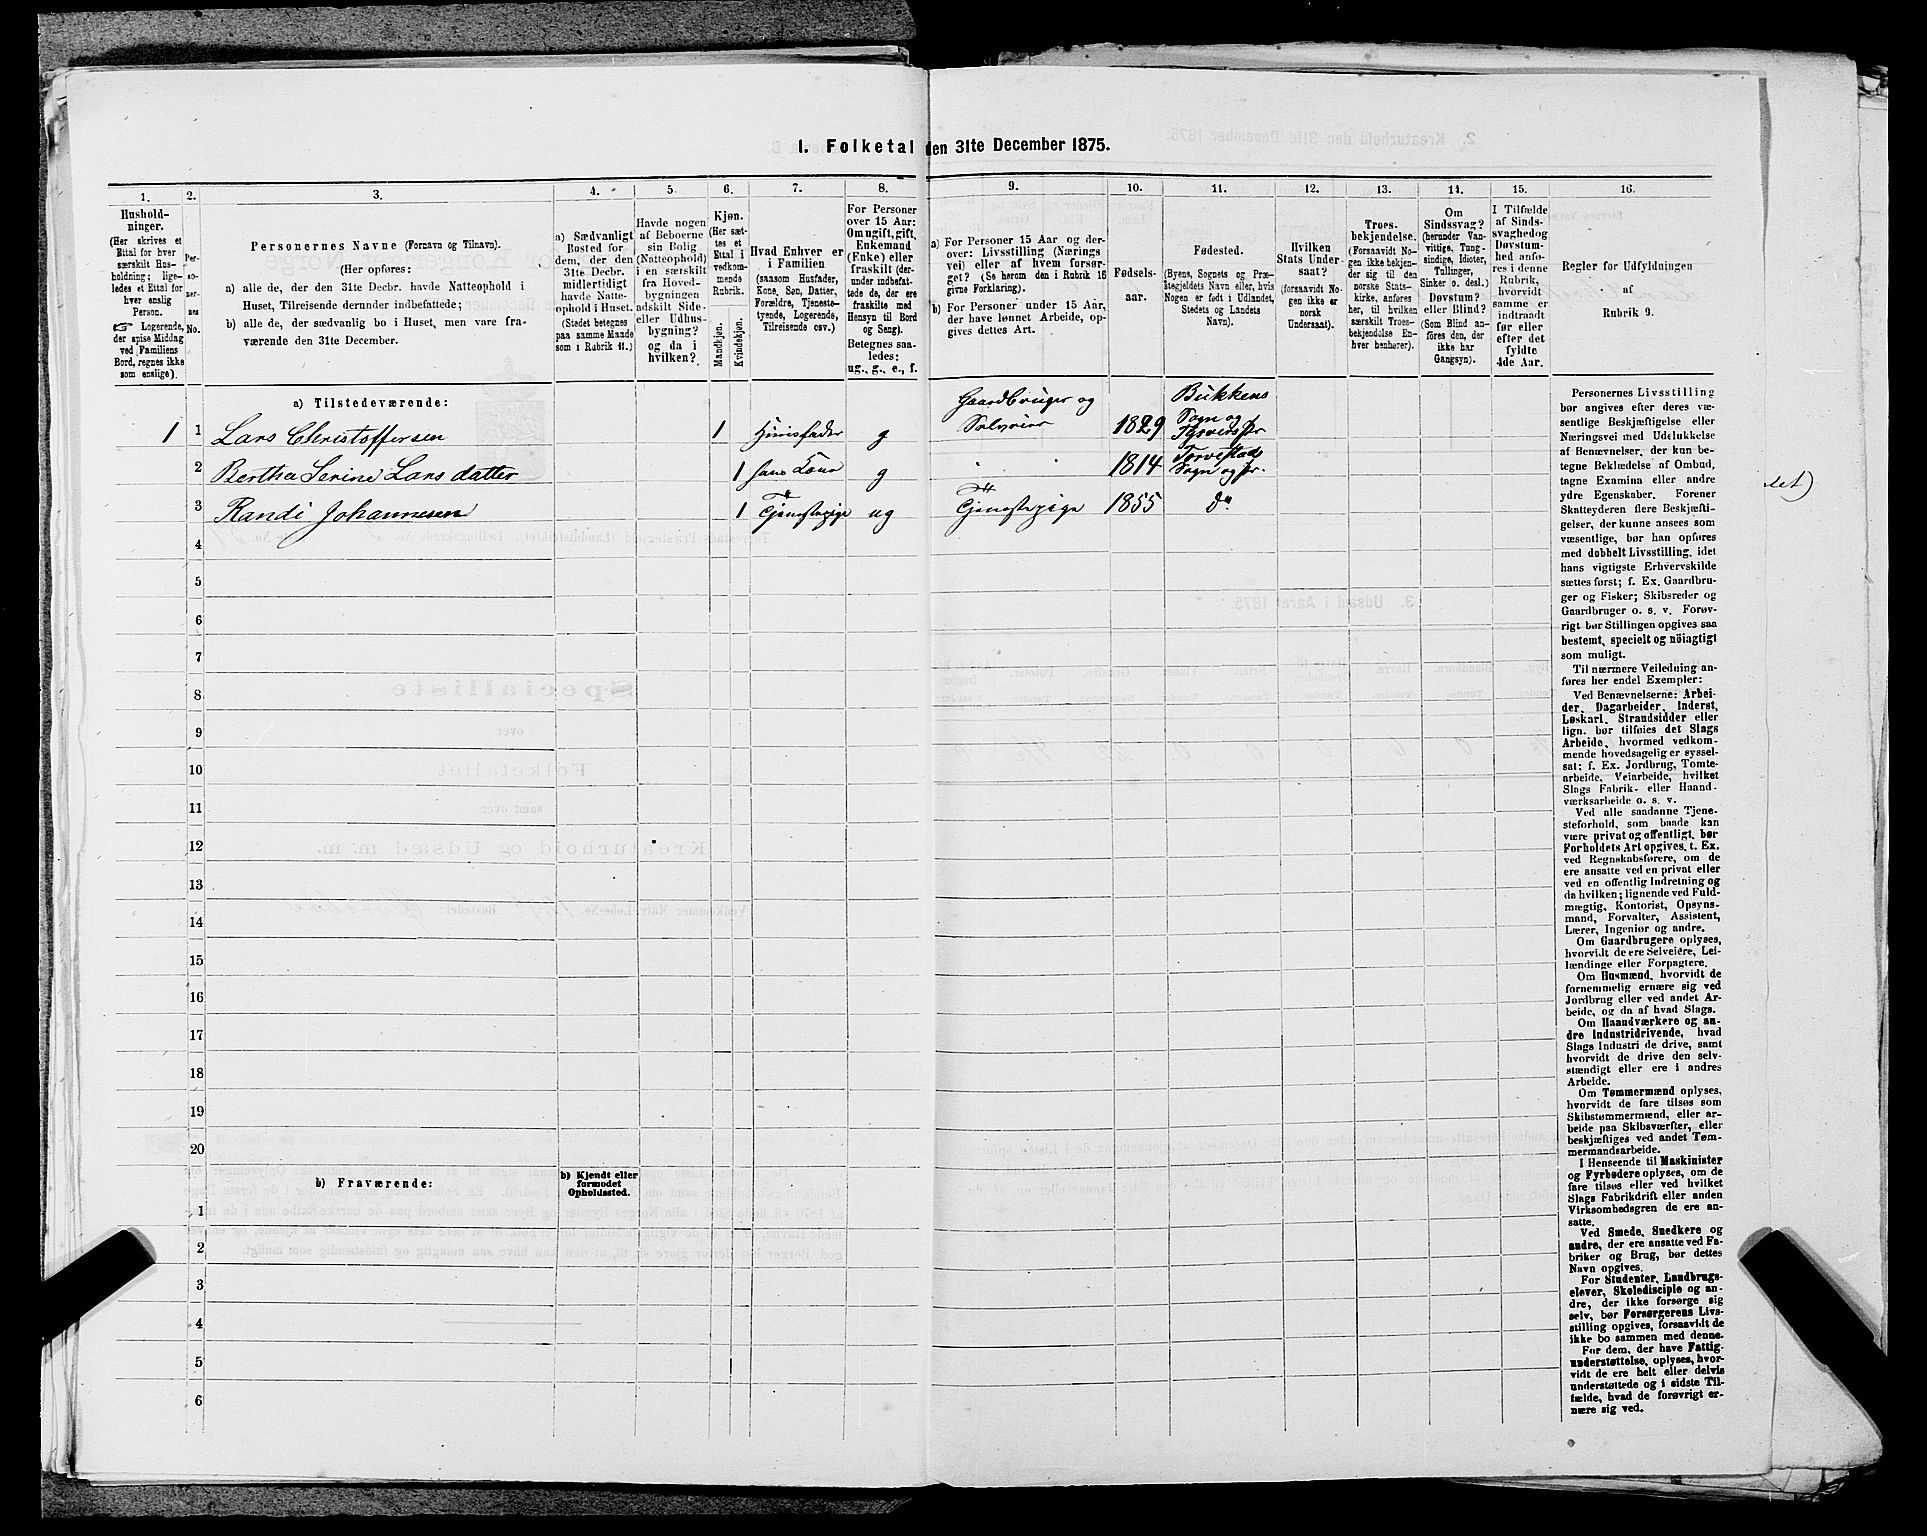 1. Folketal den 31te December 1875.
1.
Hushold-
ninger.
(Her skrives et
Ettal for hver
særskilt Hus-
holdning; lige-
ledes et Ettal for
hver enslig
Person.
☞ Logerende,
der spise Middag
ved Familiens
Bord, regnes ikke
som enslige).
2.
Per-
so-
ner-
nes
No.
3.
Personernes Navne (Fornavn og Tilnavn).
(Her opføres:
a) alle de, der den 31te Decbr. havde Natteophold i
Huset, Tilreisende derunder indbefattede;
b) alle de, der sædvanlig bo i Huset, men vare fra-
værende den 31te December.
4.
a) Sædvanligt
Bosted for
dem, der den
31te Decbr.
midlertidigt
havde Natte-
ophold i Huset.
(Stedet betegnes
paa samme Maade
som i Rubrik 11.)
5.
Havde nogen
af Beboerne
sin Bolig
(Natteophold)
i en særskilt
fra Hoved-
bygningen
adskilt Side-
eller Udhus-
bygning?
og da i
hvilken?
6.
Kjøn.
(Her sæt-
tes et
Ettal i
vedkom-
mende
Rubrik.
Mandkjøn.
Kvindekjøn.
7.
Hvad Enhver er
i Familien
(saasom Husfader,
Kone, Søn, Datter,
Forældre, Tjeneste-
tyende, Logerende,
Tilreisende osv.)
8.
For Personer
over 15 Aar:
Om ugift, gift,
Enkemand
(Enke) eller
fraskilt (der-
under indbefat-
tede de, der ere
fraskilte med
Hensyn til Bord
og Seng).
Betegnes saa-
ledes:
ug., g., e., f.
9.
a) For Personer 15 Aar og der-
over: Livsstilling (Nærings
vei) eller af hvem forsør-
get? (Se herom den i Rubrik 16
givne Forklaring).
b) For Personer under 15 Aar,
der have lønnet Arbeide, op-
gives dettes Art.
10.
Fødsels-
aar.
11.
Fødested.
(Byens, Sognets og Præ-
stegjeldets Navn eller, hvis
Nogen er født i Udlandet,
Stedets og Landets
Navn).
12.
Hvilken
Stats Under-
saat?
(forsaavidt No-
gen ikke er
norsk
Undersaat).
13.
Troes-
bekjendelse.
(Forsaavidt No-
gen ikke bekjen-
der sig til den
norske Stats-
kirke, anføres
her, til hvilken
særskilt Troes-
bekjendelse En-
hver henhører).
14.
Om
Sindssvag?
(herunder Van-
vittige, Tung-
sindige, Idioter,
Tullinger,
Sinker o. desl.)
Døvstum?
eller Blind?
(Som Blind an-
føres den, der
ikke har
Gangsyn).
15.
I Tilfælde
af Sinds-
svaghed og
Døvstum-
hed anfø-
res i denne
Rubrik,
hvorvidt
samme er
indtraadt
før eller
efter det
fyldte
4de Aar.
16.
Regler for Udfyldningen
af
Rubrik 9.
a) Tilstedeværende:
1 1 Lars Christoffersen 1 Huusfader g Gaardbruger og Selveier 1829 Bukkens Sogn og Tysvers Pr
2 Bertha Serine Larsdatter 1 hans Kone g 1814 Torvestads Sogn og Pr.
3 Randi Johannesen 1 Tjenestepige ug Tjenestepige 1855 Do
4
5
6
7
8
9
10
11
12
13
14
15
16
17
18
19
20
b) Fraværende:
b) Kjendt eller
formodet
Opholdssted.
1
2
3
4
5
6
Personernes Livsstilling
bør angives efter deres væ-
sentlige Beskjæftigelse eller
Næringsvei med Udelukkelse
af Benævnelser, der kun be-
tegne Beklædelse af Ombud,
tagne Examina eller andre
ydre Egenskaber. Forener
Skatteyderen flere Beskjæfti-
gelser, der kunne ansees som
væsentlige, bør han opføres
med dobbelt Livsstilling, idet
hans vigtigste Erhvervskilde
sættes først; f. Ex. Gaardbru-
ger og Fisker; Skibsreder og
Gaardbruger o. s. v. Forøv-
rigt bør Stillingen opgives saa
bestemt, specielt og nöiagtigt
som muligt.
Til nærmere Veiledning an-
føres her endel Exempler:
Ved Benævnelserne: Arbei-
der, Dagarbeider, Inderst,
Løskarl, Strandsidder eller
lign. bør tilføies det Slags
Arbeide, hvormed vedkom-
mende hovedsagelig er syssel-
sat; f. Ex. Jordbrug, Tomte-
arbeide, Veiarbeide, hvilket
Slags Fabrik- eller Haand-
værksarbeide o. s. v.
Ved alle saadanne Tjene-
steforhold, som baade kan
være privat og offentligt, bør
Forholdets Art opgives, t. Ex.
ved Regnskabsførere, om de
ere ansatte ved en privat eller
ved en offentlig Indretning og
da hvilken; lignende ved Fuld-
mægtig, Kontorist, Opsyns-
mand, Forvalter, Assistent,
Lærer, Ingeniør og andre.
Om Gaardbrugere oplyses,
hvorvidt de ere Selveiere, Lei-
lændinge eller Forpagtere.
Om Husmænd, hvorvidt de
fornemmelig ernære sig ved
Jordbrug eller ved andet Ar-
beide, og da af hvad Slags.
Om Haandværkere og an-
dre Industridrivende, hvad
Slags Industri de drive, samt
hvorvidt de drive den selv-
stændigt eller ere i andres
Arbeide.
Om Tømmermænd oplyses,
hvorvidt de fare tilsøs som
Skibstømmermænd, eller ar-
beide paa Skibsværfter, eller
beskjæftiges ved andet Tøm-
mermandsarbeide.
I Henseende til Maskinister
og Fyrbødere oplyses, om de
fare tilsøs eller ved hvilket
Slags Fabrikdrift eller anden
Virksomhedsgren de ere an-
satte.
Ved Smede, Snedkere og
andre, der ere ansatte ved Fa-
briker og Brug, bør dettes
Navn opgives.
For Studenter, Landbrugs-
elever, Skoledisciple og an-
dre, der ikke forsørge sig
selv, bør Forsørgerens Livs-
stilling opgives, forsaavidt de
ikke bo sammen med denne.
For dem, der have Fattig-
understøttelse, oplyses, hvor-
vidt de ere helt eller delvis
understøttede og i sidste Til-
fælde, hvad de forøvrigt er-
nære sig ved.